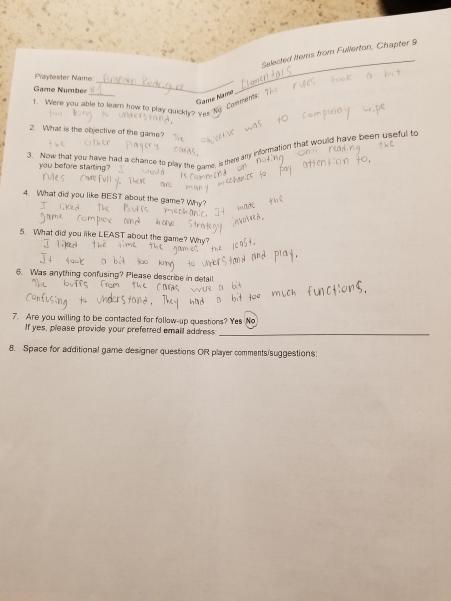 Selected Items from Fullerton, Chapter 9
Playtester Name: Brandon Rodriguez
Game Name Elementals
Game Number #1
1. Were you able to learn how to play quickly? Yes No Comments: The rules took a bit
too long to understand.
2. What is the objective of the game? The objective was to completely wipe
the other players cards.
3. Now that you have had a chance to play the game, is there any information that would have been useful to
you before starting? I would recommend on reading the
rules carefully. There are many mechanics to pay attention to.
4. What did you like BEST about the game? Why?
I liked the Buffs mechanic. It made the
game complex and have strategy involved.
5. What did you like LEAST about the game? Why?
I liked the time the games the least.
It took a bit too long to understand and play.
6. Was anything confusing? Please describe in detail
The buffs from the cards were a bit
confusing to understand. They had a bit too much functions.
7. Are you willing to be contacted for follow-up questions? Yes No
If yes, please provide your preferred email address:
8. Space for additional game designer questions OR player comments/suggestions: